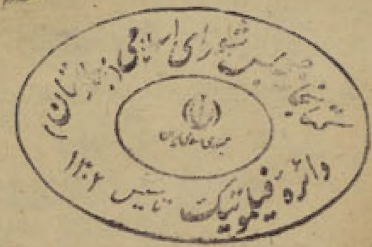 کتابخانه مجلس شورای اسلامی (بهارستان)
جمهوری اسلامی ایران
دائرة فیلموتیک تاسیس ۱۳۰۲